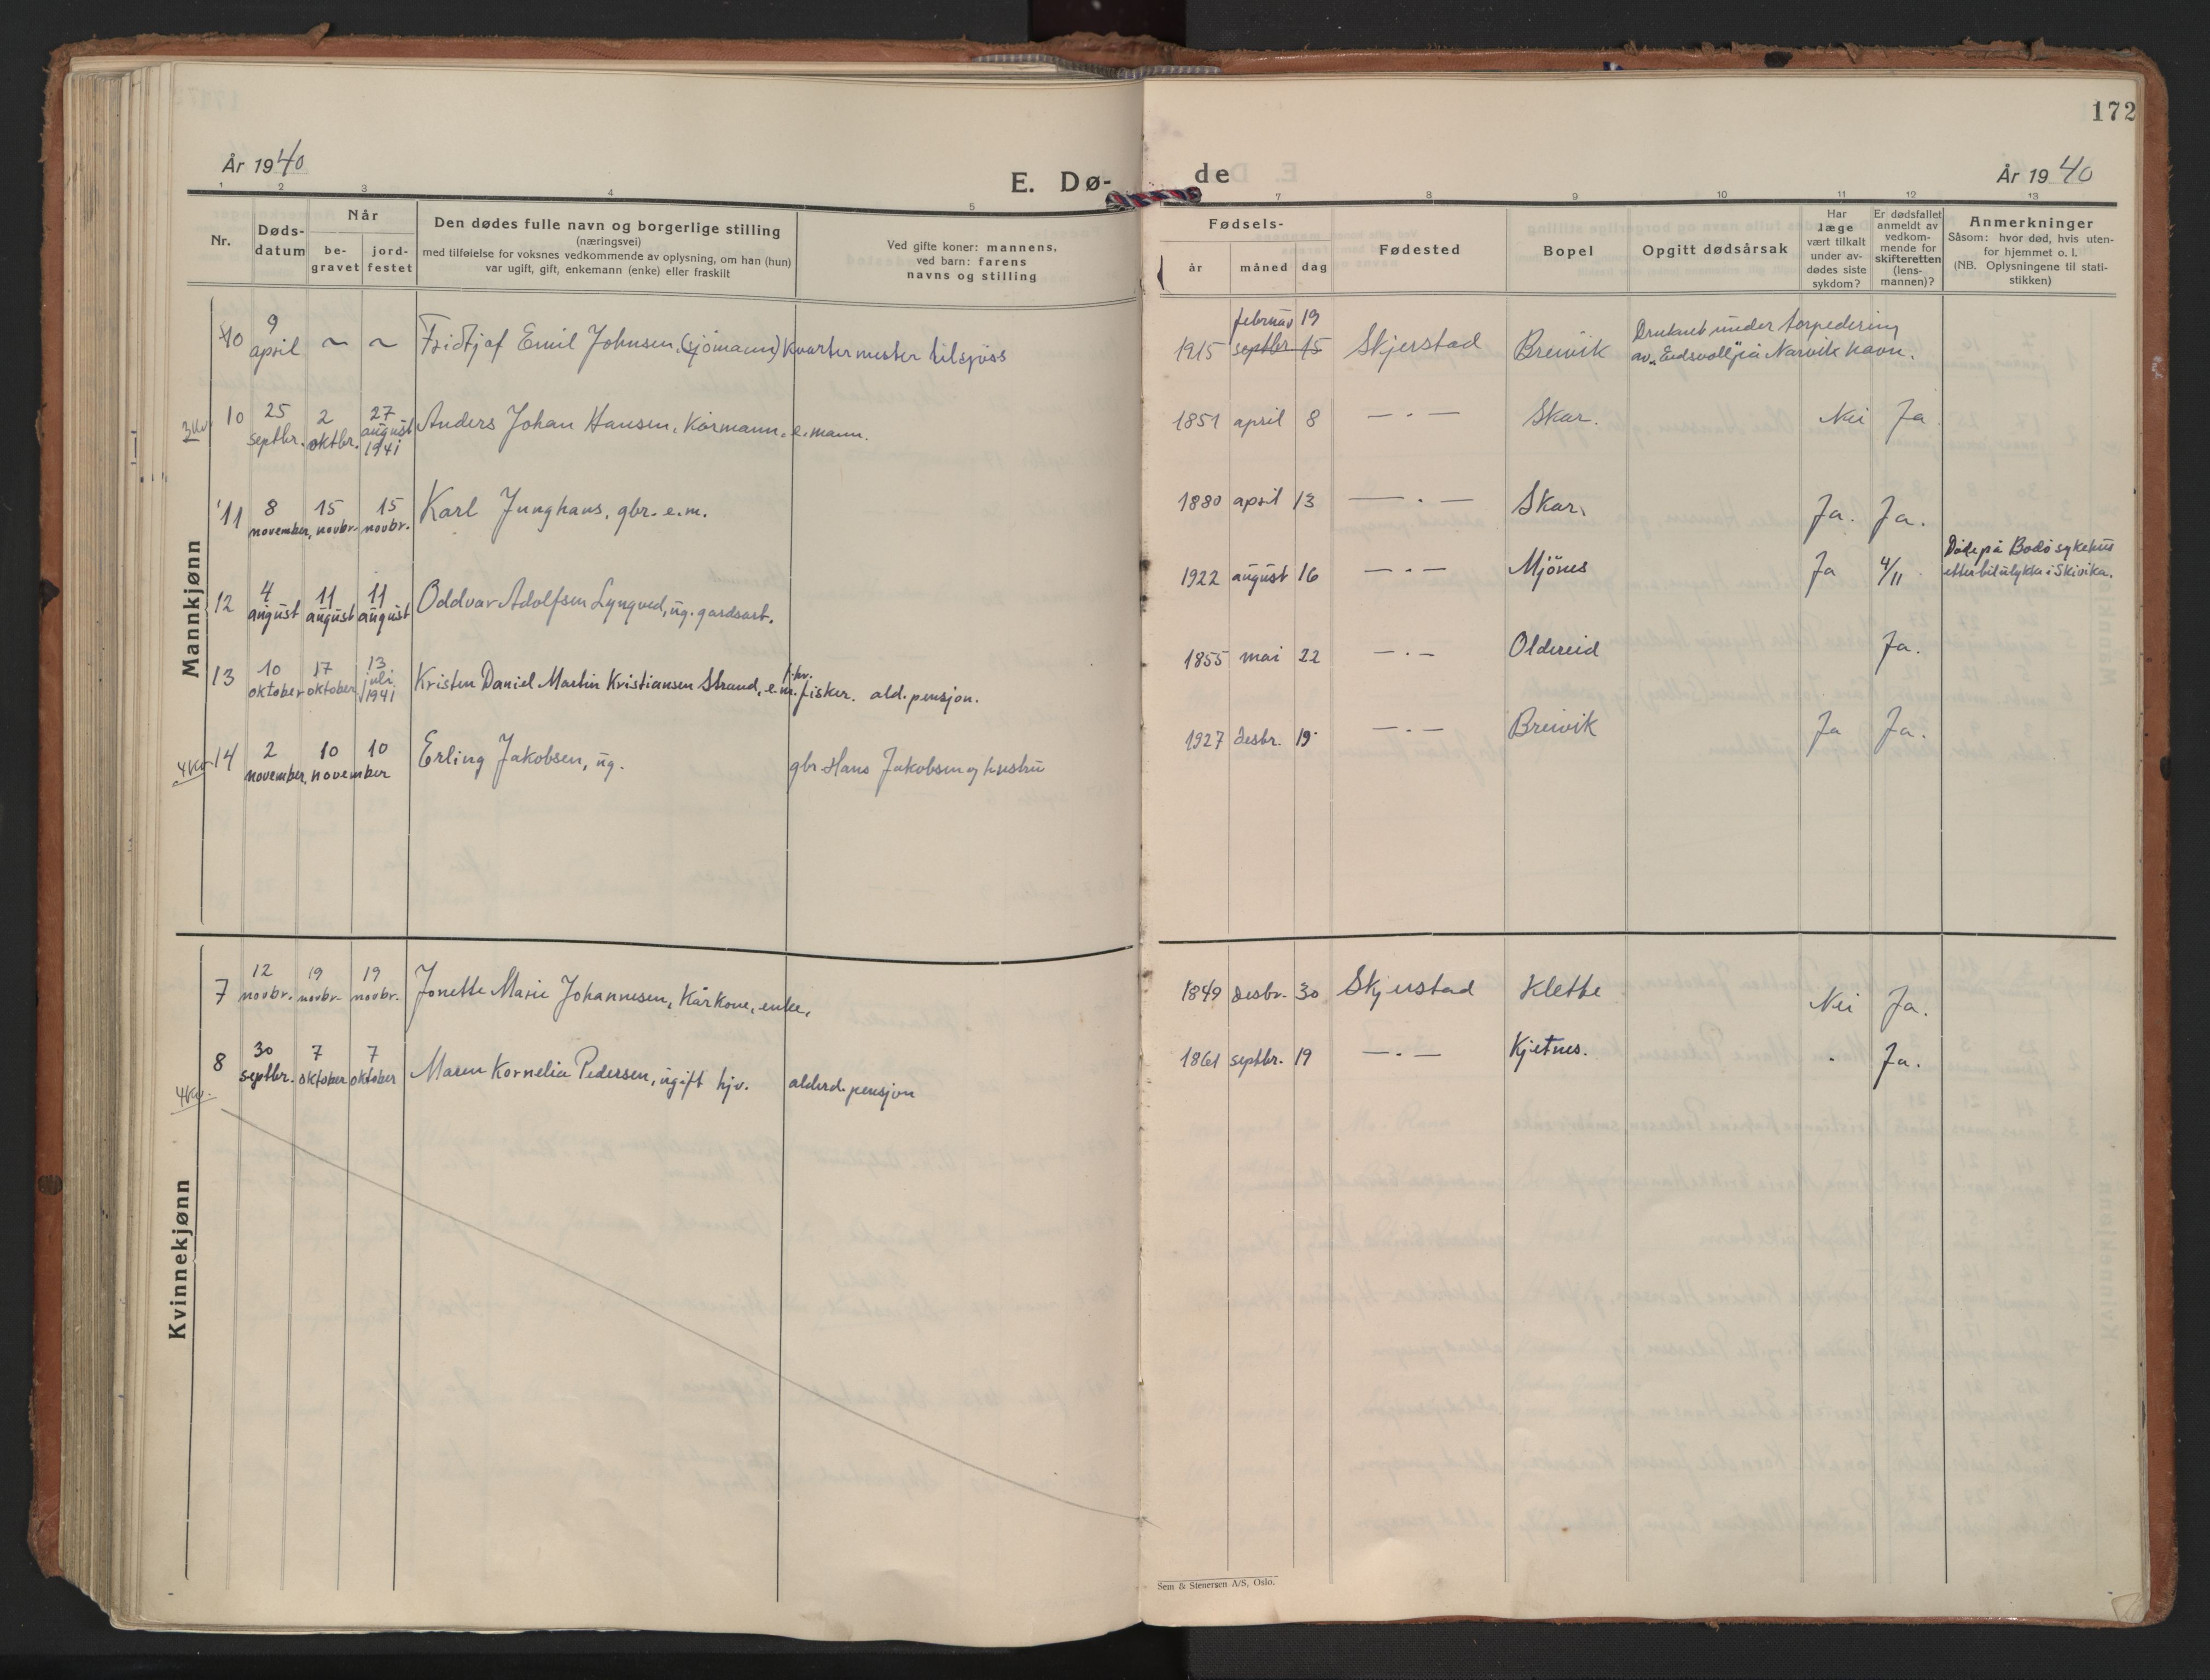 172
År 1940
E. Dø-
de
År 1940
1 2 3 4 5 7 8 9 10 11 12 13
Nr.
Døds-
datum
Når
be-
gravet
jord-
festet
Den dødes fulle navn og borgerlige stilling
(næringsvei)
med tilføielse for voksnes vedkommende av oplysning, om han (hun)
var ugift, gift, enkemann (enke) eller fraskilt
Ved gifte koner: mannens,
ved barn: farens
navns og stilling
Fødsels-
år måned dag
Fødested
Bopel
Opgitt dødsårsak
Har
læge
vært tilkalt
under av-
dødes siste
sykdom?
Er dødsfallet
anmeldt av
vedkom-
mende for
skifteretten
(lens-
mannen)?
Anmerkninger
Såsom: hvor død, hvis uten-
for hjemmet o. l.
(NB. Oplysningene til stati-
stikken)
Mannkjønn
10 9 april ~ ~ Fridtjof Emil Johnsen, (sjömann) Kvartermester tilsjöss
februar 19
1915 septbr 15 Skjerstad Breivik
Druknet under torpedering
av "Eidsvoll" på Narvik havn.
3 kv. 10 25 septbr. 2 oktbr. 27 august 1941 Anders Johan Hansen, Kårmann, e.mann.
1851 april 8 — . — Skar. Nei Ja
11 8 november, 15 novbr. 15 novbr. Karl Junghans, gbr. e.m.
1880 april 13 — . — Skar. Ja. Ja.
12 4 august 11 august 11 august Oddvar Adolfsen Lyngved, ug. gardsarb.
1922 august 16 — . — Mjönes Ja 4/11
Døde på Bodø sykehus
etter bilulykke i Skivika.
13 10 oktober 17 oktober 13 juli 1941 Kristen Daniel Martin Kristiansen Strand, e.m. fhv. fisker. ald. pensjon.
1855 mai 22 — . — Oldereid Ja.
4 kv 14 2 november 10 november 10 Erling Jakobsen, ug. gbr Hans Jakobsen og hustru
1927 desbr. 19 — . — Breivik Ja Ja.
Kvinnekjønn
7 12 novbr. 19 novbr. 19 novbr. Jonette Marie Johannesen, Kårkone, enke,
1849 desbr. 30 Skjerstad Klette Nei Ja.
4 kv. 8 30 septbr. 7 oktober 7 oktober Maren Kornelia Pedersen, ugift hjv. alderd. pensjon
1861 septbr. 19 — . — Kjetnes. . Ja.
Sem & Stenersen A/S, Oslo.